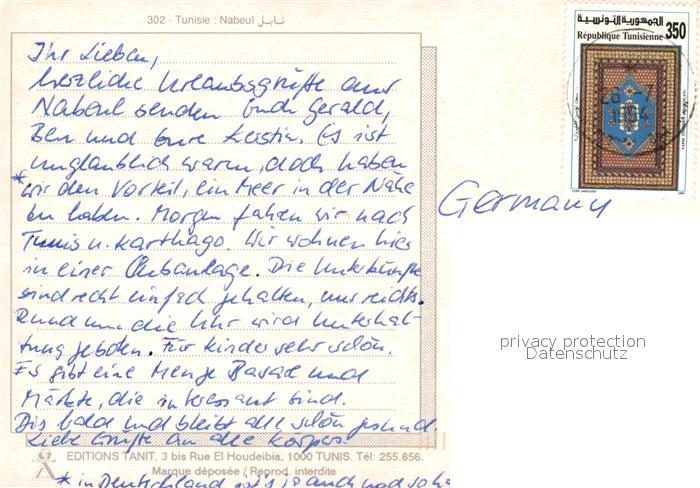 302 - Tunisie : Nabeul نابل
الجمهورية التونسية
République Tunisienne 350
1994
Ihr Lieben,
herzliche Urlaubsgrüße aus
Nabeul senden Euch Gerald,
Ben und Eure Kerstin. Es ist
unglaublich warm, doch haben
* wir den Vorteil, ein Meer in der Nähe
zu haben. Morgen fahren wir nach
Tunis u. Karthago. Wir wohnen hier
in einer Clubanlage. Die Unterkünfte
sind recht einfach gehalten, uns reichts.
Rund um die Uhr wird Unterhal-
tung geboten. Für Kinder sehr schön.
Es gibt eine Menge Basare und
Märkte, die interessant sind.
Bis bald und bleibt alle schön gesund.
Liebe Grüße an alle
Germany
privacy protection
Datenschutz
EDITIONS TANIT. 3 bis Rue El Houdeibia, 1000 TUNIS. Tél: 255.856.
Marque déposée / Reprod. interdite
* in Deutschland ist's ja auch